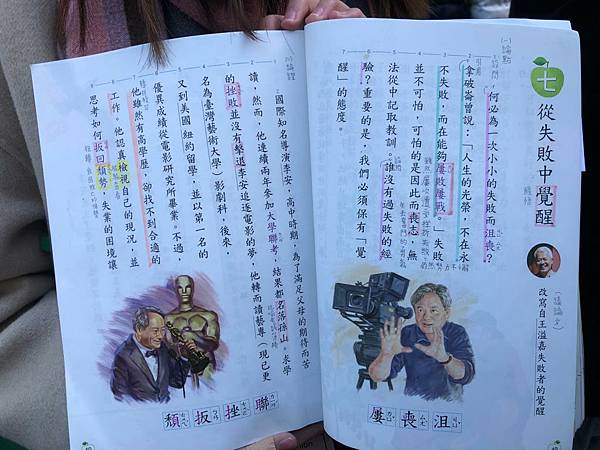 七
從失敗中覺醒
(議論文)
改寫自王溢嘉失敗者的覺醒
(一)論點
何必為一次小小的失敗而沮喪？
拿破崙曾說：「人生的光榮，不在永
不失敗，而在能夠屢敗屢戰。」失敗
並不可怕，可怕的是因此而喪志，無
法從中記取教訓。誰沒有過失敗的經
驗？重要的是，我們必須保有「覺
醒」的態度。
沮
喪
屢
國際知名導演李安，高中時期，為了滿足父母的期待而苦
讀，然而，他連續兩年參加大學聯考，結果都名落孫山。求學
的挫敗並沒有擊退李安追逐電影的夢，他轉而讀藝專（現已更
名為臺灣藝術大學）影劇科，後來，
又到美國紐約留學，並以第一名的
優異成績從電影研究所畢業。不過，
他雖然有高學歷，卻找不到合適的
工作。他認真檢視自己的現況，並
思考如何扳回頹勢，失業的困境讓
聯
挫
扳
頹